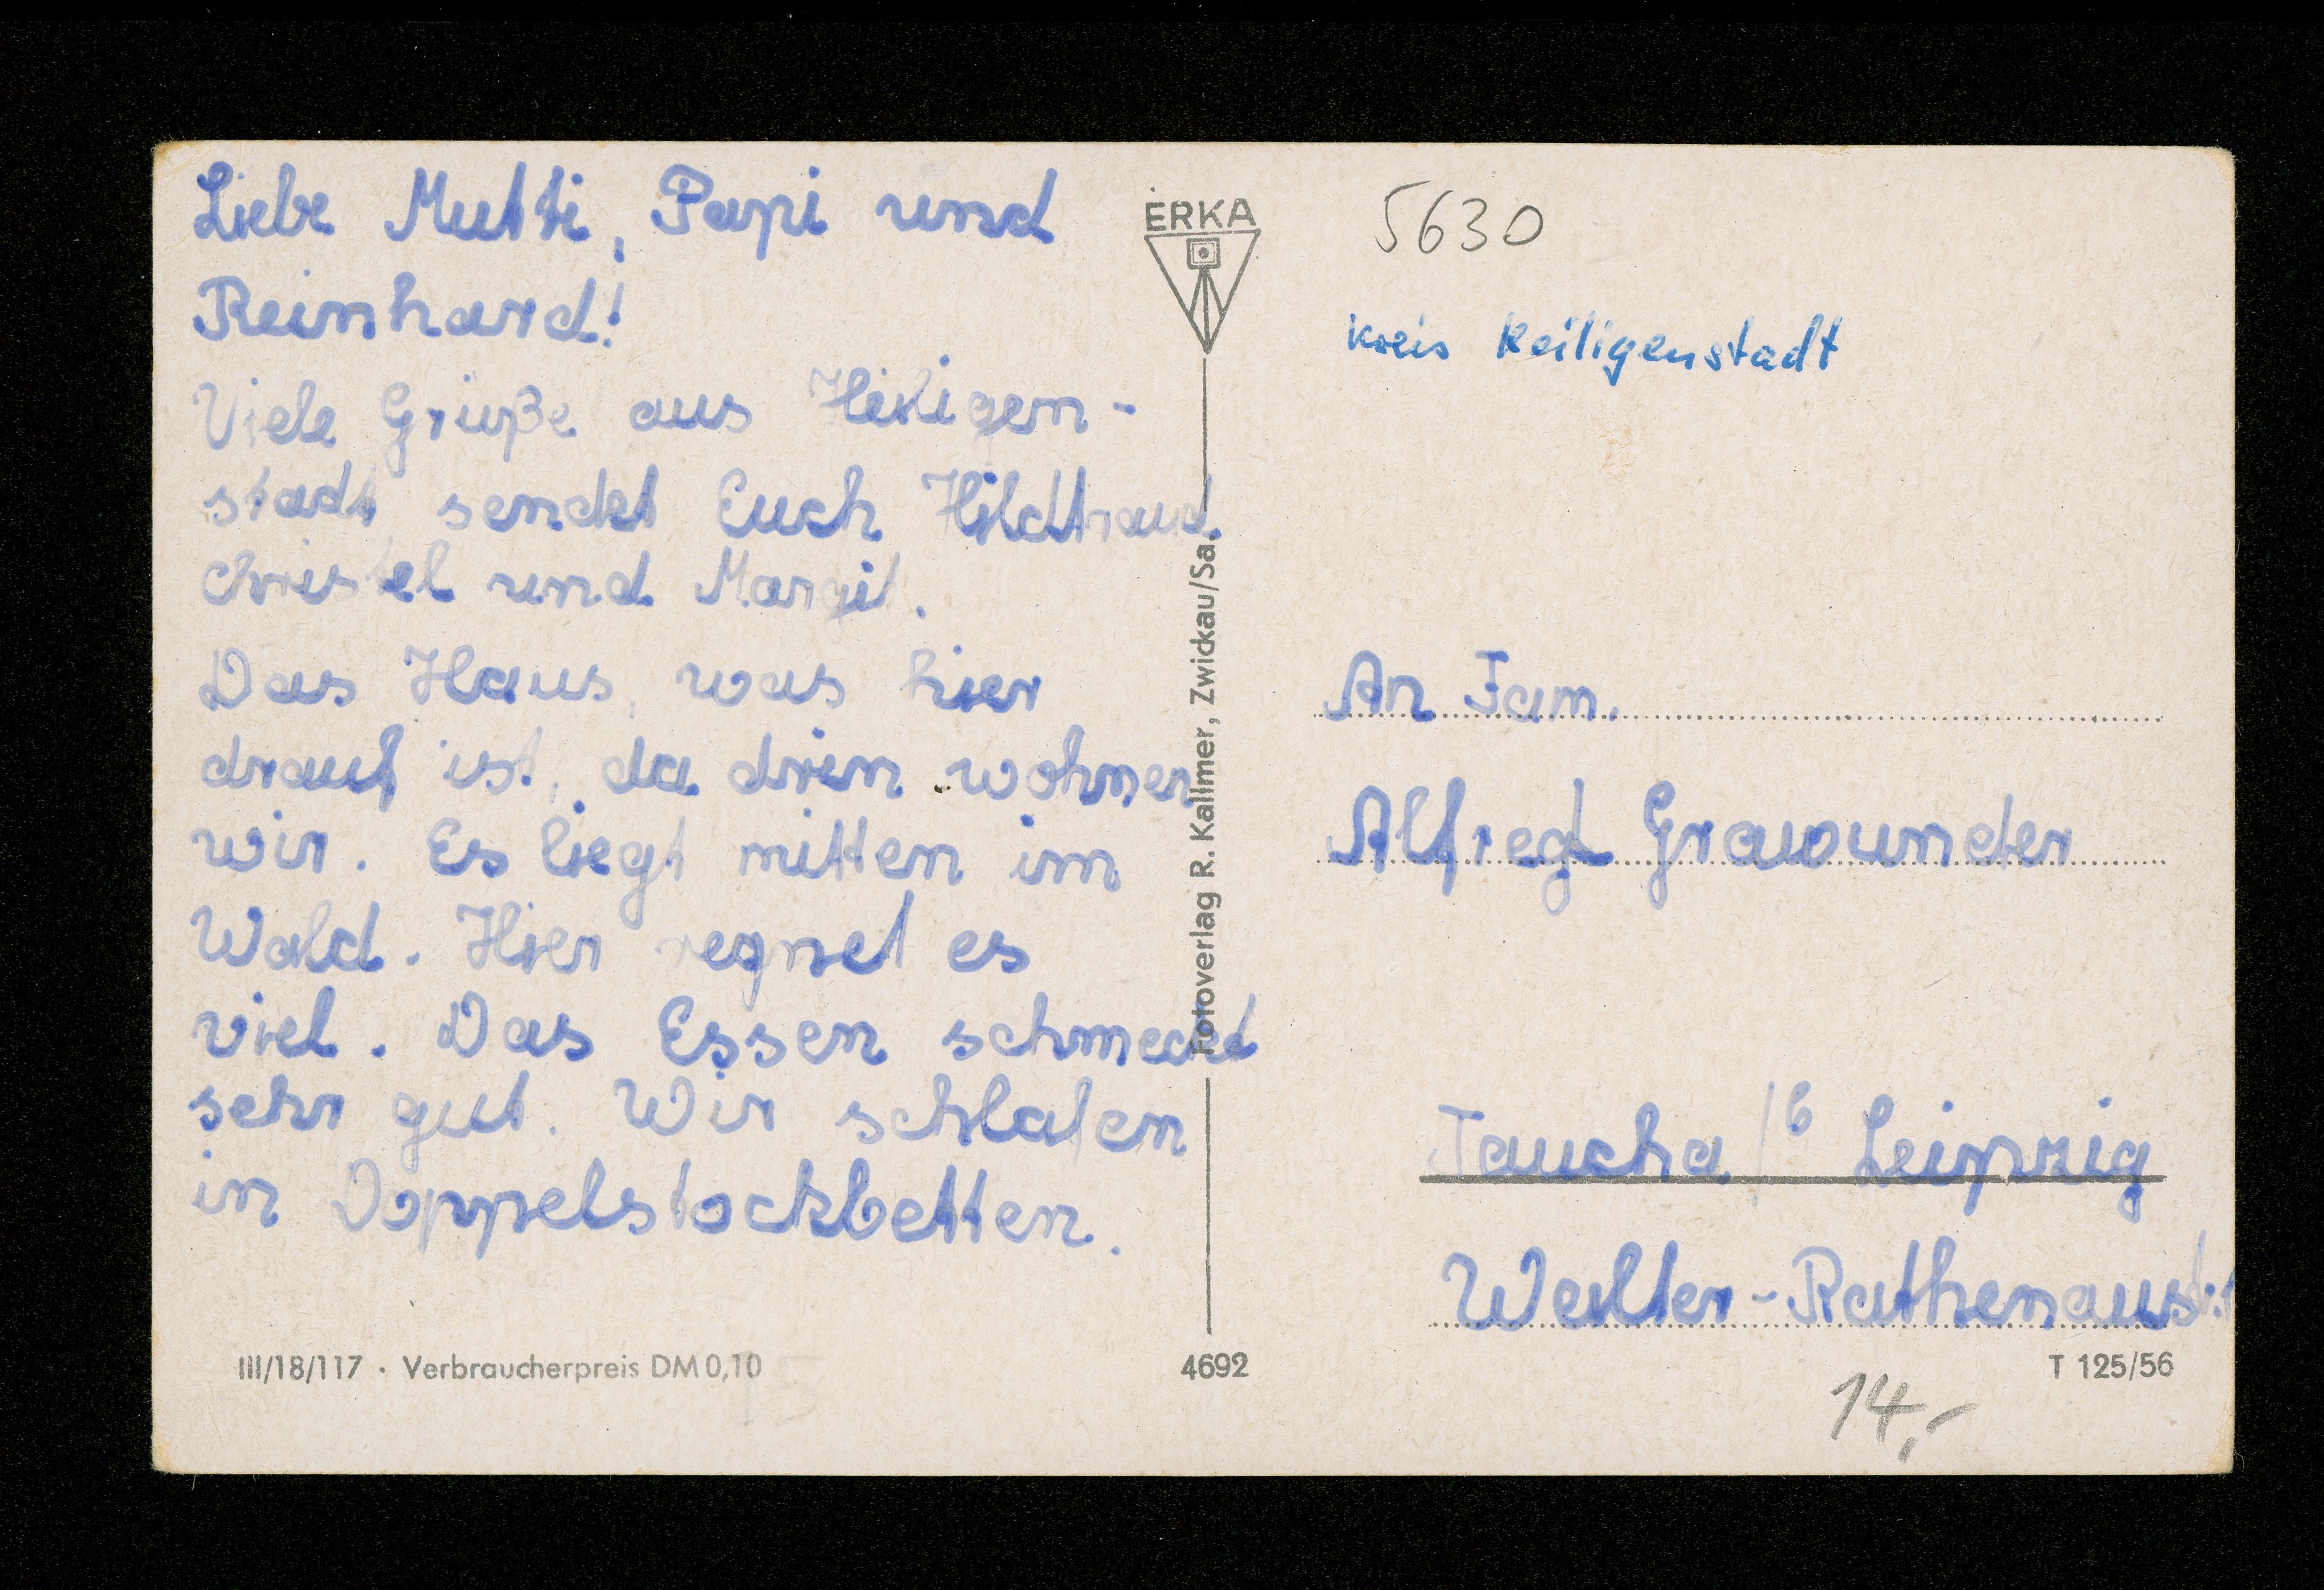 Liebe Mutti, Papi und
Reinhard!
Viele Grüße aus Heiligen-
stadt sendet Euch Hildtraud
Christel und Margit.
Das Haus, was hier
drauf ist, da drin wohnen
wir. Es liegt mitten im
Wald. Hier regnet es
viel. Das Essen schmeckt
sehr gut. Wir schlafen
in Doppelstockbetten.
III/18/117 · Verbraucherpreis DM 0,10
ERKA
Fotoverlag R. Kallmer, Zwickau/Sa.
4692
5630
Kreis Heiligenstadt
An Fam.
Alfred Grauwunder
Taucha / b Leipzig
Walter-Rathenaustr.
T 125/56
14,-